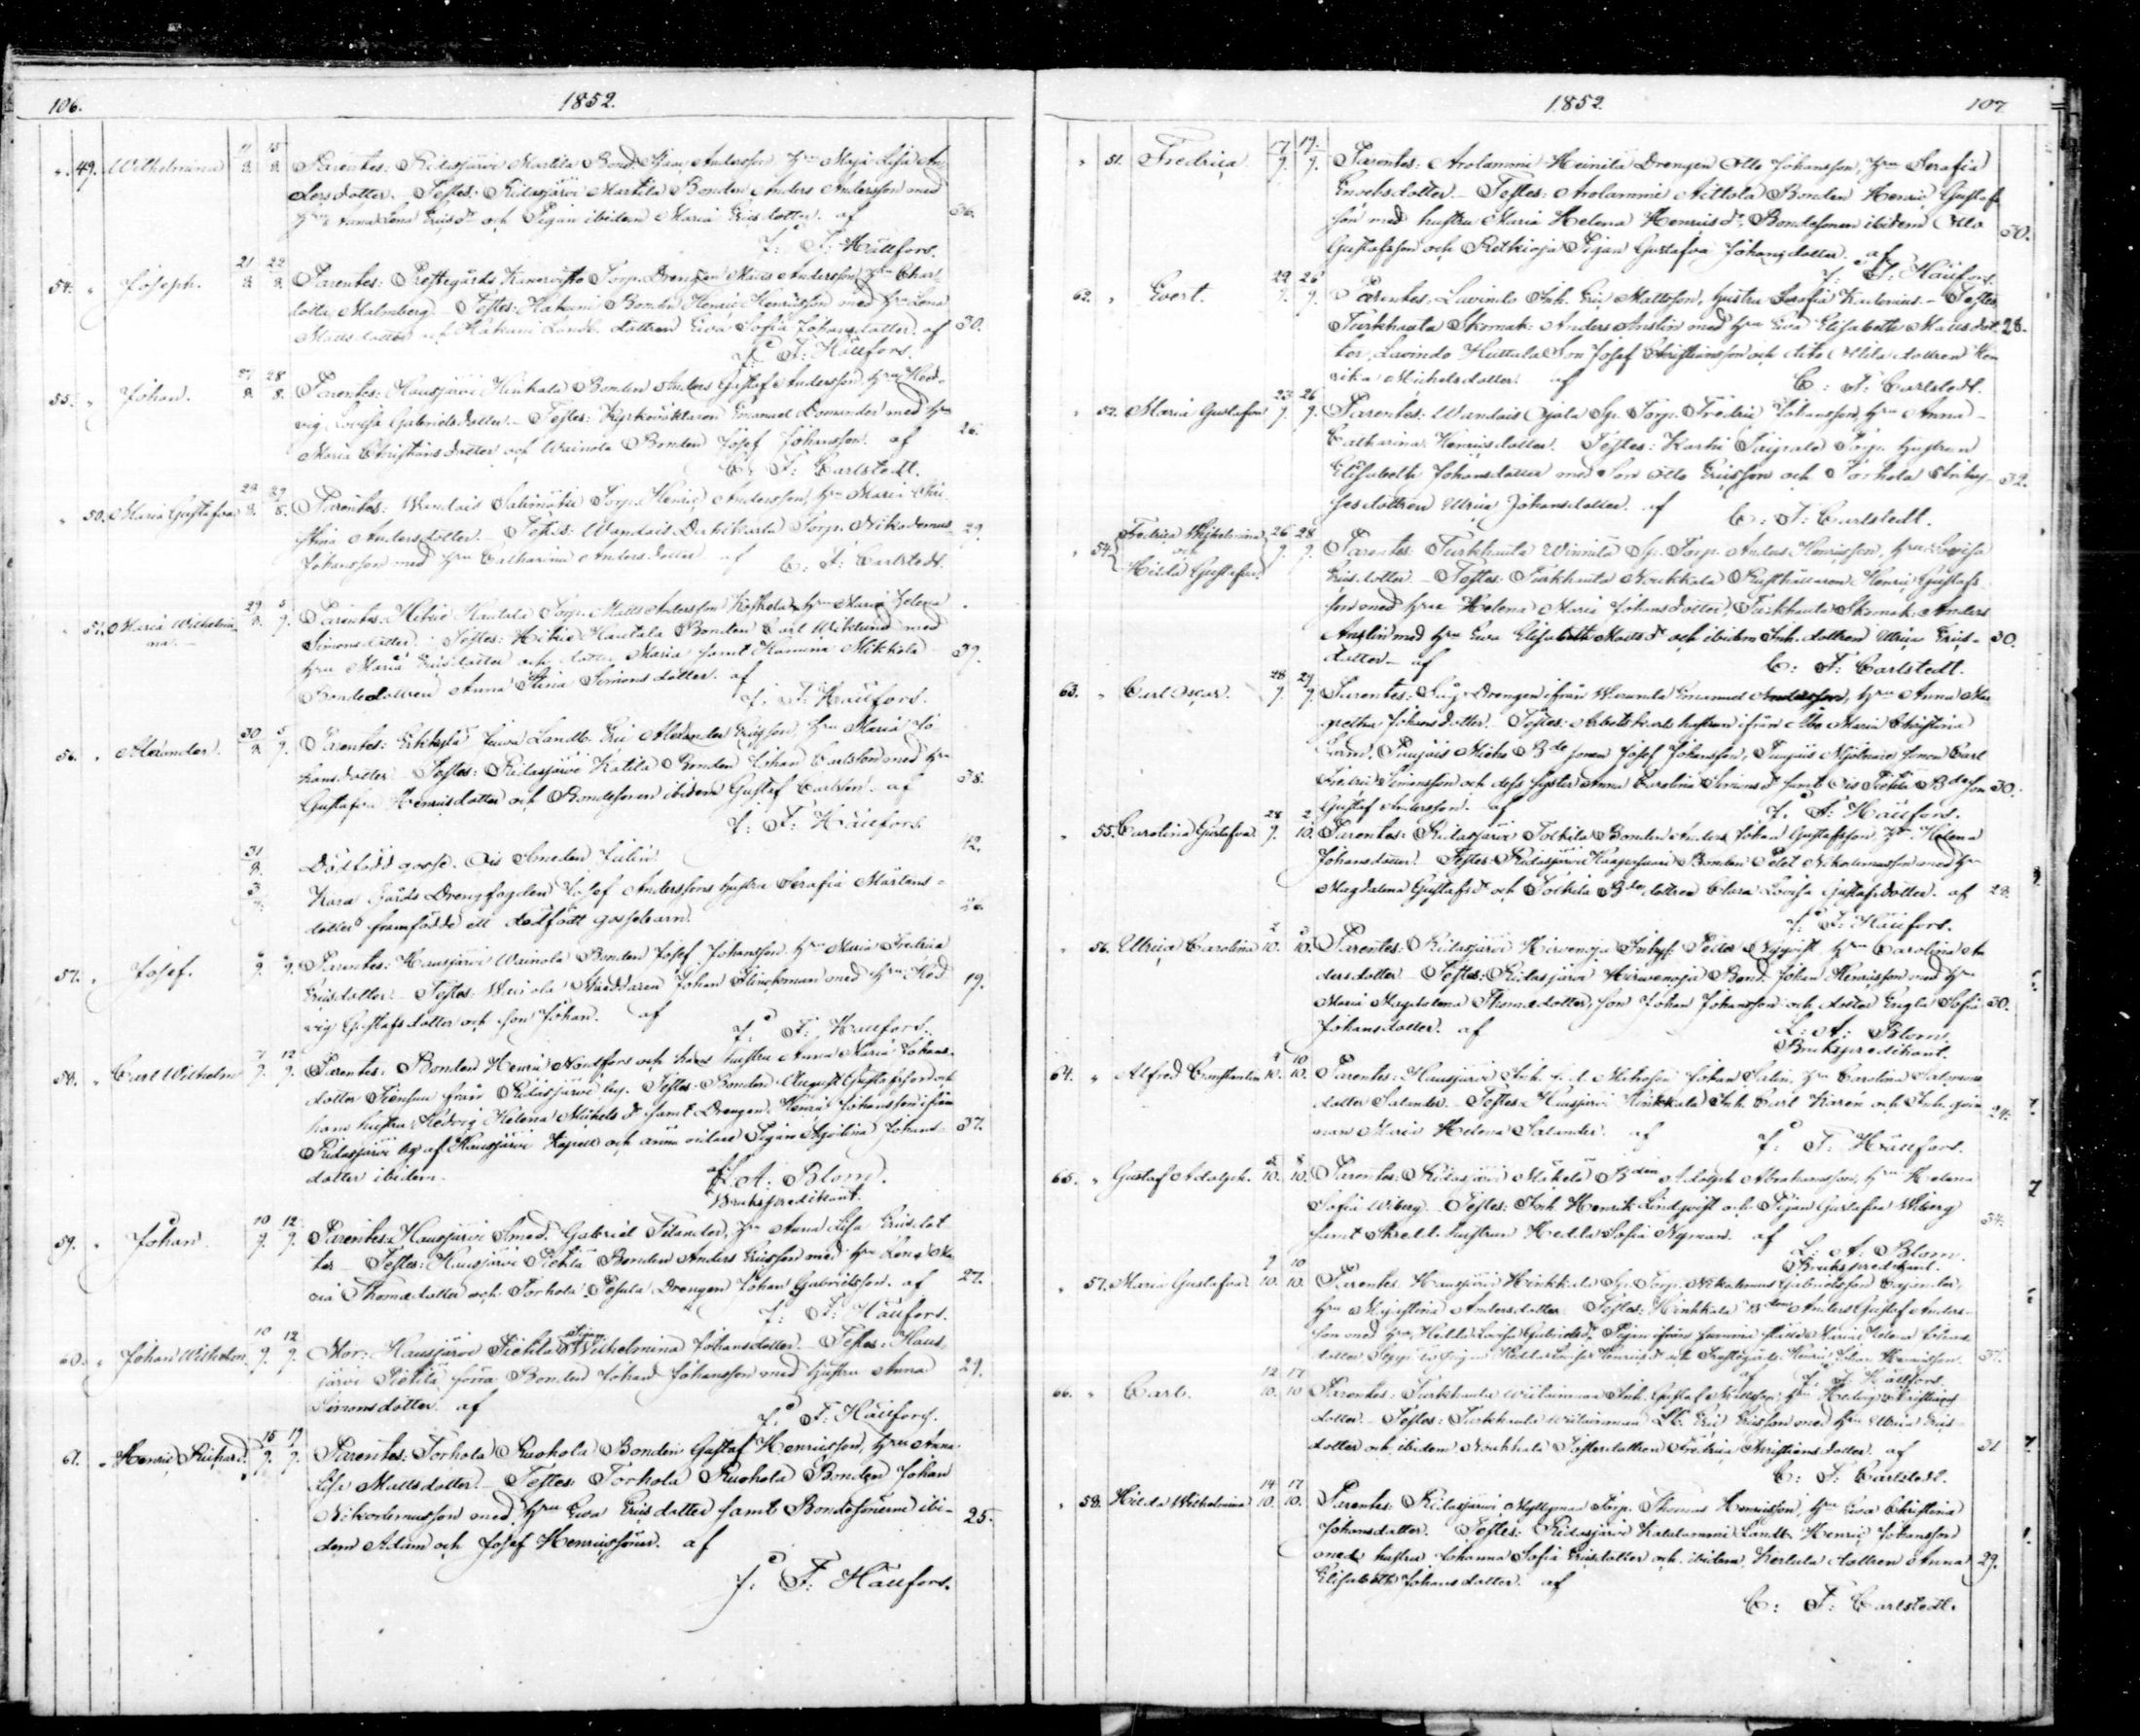 106. 1852.
". 49. Wilhelmina 11/8. 15/8. Parentes: Ridasjärvi Martila Bond. Isaac Andersson, Hru Maja Lisa An-
dersdotter. Testes: Ridasjärvi Martila Bonden Anders Andersson med
Hru Anna Lena Ericsdr och Pigan ibidem Maria Ericsdotter. af 36.
J: F: Hällfors.
54. " Joseph. 21/8. 22/8. Parentes: Prestegårds Kanervisto Torp. Drengen Matts Andersson, Hru Char-
lotta Malmberg. Testes: Hakuni Bonden Henric Henricsson med Hru Lena
Mattsdotter och Hakuni Landb. dottren Eva Sofia Johansdotter. af 30.
J: F: Hällfors.
55. " Johan. 27/8. 28/8. Parentes: Hausjärvi Hinkala Bonden Anders Gustaf Andersson, Hru Hed-
vig Lovisa Gabrielsdotter. Testes: Kyrkoväktaren Emanuel Domander med Hru
Maria Christiansdotter och Wainola Bonden Josef Johansson. af 26.
C: F: Carlstedt.
" 50. Maria Gustafva 28/8. 29/8. Parentes: Wandais Salimäki Torp. Henric Andersson, Hru Maria Chri-
stina Andersdotter. Testes: Wandais Torp. Nikodemus 29.
Johansson med Hru Catharina Andersdotter af C: F: Carlstedt.
" 51. Maria Wilhelmi- 29/8. 5/9. Parentes: Hikiä Hautala Torp. Matts Andersson Koskela, Hru Maria Helena
na. Simonsdotter. Testes: Hikiä Hautala Bonden Carl Wiklund med
Hru Maria Ericsdotter och dotter Maria samt Mikkola 39.
Bondedottren Anna Stina Simonsdotter. af
J: F: Hällfors.
56. " Alexander. 30/8. 5/9. Parentes: Erkkylä Landb. Eric Alexander Ericsson, Hru Maria Jo-
hansdotter. Testes: Ridasjärvi Katila Bonden Johan Carlsson med Hru
Gustafva Henricsdotter och Bondesonen ibidem Gustaf Carlsson. af 38.
J: F: Hällfors.
31/8. Dödfödd gosse. Ois Smeden Julin. 42.
3/9. Kara Gårds Drengfogden Josef Anderssons hustru Serafia Mårtens-
dotter framfödde ett dödfödt gossebarn. 26.
57. " Josef. Parentes: Hausjärvi Wainola Bonden Josef Johansson, Hru Maria Fredrica
Ericsdotter. Testes: Skreddaren Johan Flinckman med Hru Hed- 19.
vig Gustafsdotter och son Johan. af J: F: Hällfors.
58. " Carl Wilhelm 7/9. 12/9. Parentes: Bonden Henric Nordfors och hans hustru Anna Maria Johans-
dotter från Ridasjärvi by. Testes: Bonden August Gustafsson och
hans hustru Hedvig Helena Michelsdr samt Drengen Henric Johansson ifrån
Ridasjärvi by af Hausjärvi Kapell och Pigan Johans- 37.
dotter ibidem. af
L: A: Blom.
Brukspredikant.
59. " Johan. 10/9. 12/9. Parentes: Hausjärvi Smed. Gabriel Filander, Hru Anna Lisa Ericsdot-
ter. Testes: Hausjärvi Pietilä Bonden Anders Ericsson med Hru Lena Ma-
ria Thomasdotter och Torhola Pesula Drengen Johan Gabrielsson. af 27.
J: F: Hällfors.
60. " Johan Wilhelm. 10/9. 12/9. Mor: Hausjärvi Pietilä Pigan Wilhelmina Johansdotter. Testes: Haus-
järvi Pietilä förra Bonden Johan Johansson med hustru Anna 29.
Simonsdotter. af
J: F: Hällfors.
61. " Henric Richard. 15/9. 19/9. Parentes: Torhola Ruohola Bonden Gustaf Henricsson, Hru Anna
Lisa Mattsdotter. Testes: Torhola Ruohola Bonden Johan
Nikodemusson med Hru Eva Ericsdotter samt Bondesönerne ibi- 25.
dem Adam och Josef Henricssöner. af
J: F: Hällfors.
1852. 107
" 51. Fredrica 17/9. 19/9. Parentes: Arolammi Heinilä Drengen Otto Johansson, Hru Serafia
Enochsdotter. Testes: Arolammi Aittola Bonden Henric Gustafs-
son med hustru Maria Helena Henricsdr, Bondesonen ibidem Otto 30.
Gustafsson och Retkioja Pigan Gustafva Johansdotter. af
J: F: Hällfors.
62. " Evert. 22/9. 26/9. Parentes: Lavindo Inh. Eric Mattsson, hustru Serafia Testes
Turkhauta Skomak: Anders Anslin med Hru Eva Elisabeth Mattsdot- 28.
ter, Lavindo Huttala Son Josef Christiansson och dito dottren Hen-
rika Michelsdotter. af C: F: Carlstedt.
" 52. Maria Gustafva 23/9. 26/9. Parentes: Wandais Ojala Sp. Torp. Fredric Johansson, Hru Anna
Catharina Henricsdotter. Testes: Karhi Torp. hustrun
Elisabeth Johansdotter med Son Otto Ericsson och Torhola Inhy- 32.
sesdottren Ulrica Johansdotter. af C: F: Carlstedt.
" 54. { Fredrica Wilhelmina
och
Hilda Gustafva } 26/9. 28/9. Parentes: Turkhauta Winnilä Sp. Torp. Anders Henricsson, Hru Lovisa
Ericsdotter. Testes: Turkhauta Noukkala Rusthållaren Henric Gustafs-
son med Hru Helena Maria Johansdotter, Turkhauta Skomak: Anders
Anslin med Hru Eva Elisabeth Mattsdr och ibidem Inh. dottren Ulrica Erics- 30.
dotter. af C: F: Carlstedt.
63. " Carl Oscar. 28/9. 29/9. Parentes: Drengen ifrån Emanuel Andersson, Hru Anna Mar-
gretha Johansdotter. Testes: Arbetskarls hustrun ifrån Åbo Maria Christina
Bdesonen Josef Johansson, Mjölnare sonen Carl
Fredric Simonsson och dess syster Anna Carolina Simonsdr samt Ois Pietilä Bdeson 30.
Gustaf Andersson. af J: F: Hällfors.
" 55. Carolina Gustafva. 28/9. 2/10. Parentes: Ridasjärvi Tolkila Bonden Anders Johan Gustafsson, Hru Helena
Johansdotter. Testes: Ridasjärvi Bonden Nikodemusson med Hru
Magdalena Gustafsdr och Tolkila Bdedottren Clara Lovisa Gustafsdotter. af 23.
J: F: Hällfors.
" 56. Ulrica Carolina 2/10. 3/10. Parentes: Ridasjärvi Hirvenoja Inhys. Peter Nyqvist, Hru Carolina An-
dersdotter. Testes: Ridasjärvi Hirvenoja Bond. Johan Henricsson med Hru
Maria Magdalena Thomasdotter, son Johan Johansson och dotter Engla Sofia 30.
Johansdotter. af L: A: Blom.
Brukspredikant.
64. " Alfred Constantin 4/10. 10/10. Parentes: Hausjärvi Inh. f. d. Matrosen Johan Salin, Hru Carolina Salomons-
dotter Salander. Testes: Hausjärvi Hinkkala Inh. Carl Karén och Inh. qvin- 24.
nan Maria Helena Salander. af J: F: Hällfors.
65. " Gustaf Adolph. 5/10. 8/10. Parentes: Ridasjärvi Mäkelä Bden Adolph Abrahamsson, Hru Helena
Sofia Wiberg. Testes: Inh. Henrik Lindqvist och Pigan Gustafva Wiberg
samt Skredd. hustrun Hedda Sofia Nyman. af 34.
L: A: Blom.
Brukspredikant.
" 57. Maria Gustafva. 9/10. 10/10. Parentes: Hausjärvi Hinkkala Sp. Torp. Nikodemus Gabrielsson Cajander,
Hru Maja Stina Andersdotter. Testes: Hinkkala Bdens Anders Gustaf Anders-
son med Hru Hedda Lovisa Gabrielsdr, Pigan ifrån Maria Helena Johans-
dotter Hedda Lovisa Henricsdr och Prestegårds Henric Johan Henricsson. 37.
af J: F: Hällfors.
66. " Carl. 12/10. 17/10. Parentes: Turkhauta Wiitainmaa Inh. Gustaf Mattsson, Hru Hedvig Christians-
dotter. Testes: Turkhauta Wiitainmaa Lb. Eric Ericsson med Hru Ulrica Erics-
dotter och ibidem Noukkala Systerdottren Fredrica Christiansdotter. af 31.
C: F: Carlstedt.
" 58. Hilda Wilhelmina 14/10. 17/10. Parentes: Ridasjärvi Myllymaa Torp. Thomas Henricsson, Hru Eva Christina
Johansdotter. Testes: Ridasjärvi Katalammi Landb. Henric Johansson
med hustru Johanna Sofia Ericsdotter och ibidem Kertula dottren Anna 29.
Elisabeth Johansdotter. af
C: F: Carlstedt.